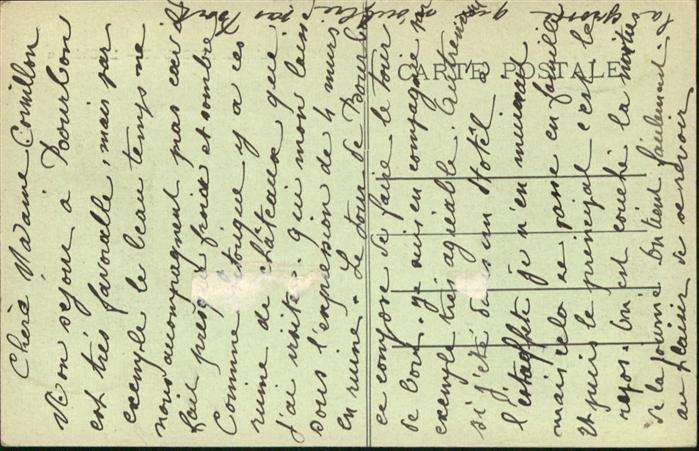 CARTE POSTALE
Chère Madame Cornillon
Mon séjour a Bourbon
est très favorable, mais par
exemple le beau temps ne
nous acompagnent pas car il
fait presque froid et sombre
Comme y a ces
ruine de châteaux que
j'ai visité. qui mon laissé
sous l'expression de 4 murs
en ruine. Le tour de Bourbon
ce compose de faire le tour
de bou. Je suis en compagnie par
exemple très agréable. Autrement
si j'été dans un Hotel
je m'en
mais cela se passe en famille
Et puis le principal c'est le
repos. On est couché la moitiés
de la journé
au plaisir de se revoir